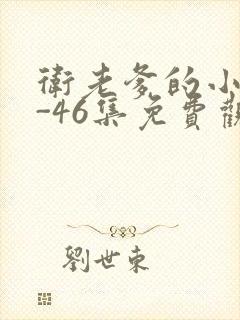 衛老爹的小
-46集免費觀
劉世東